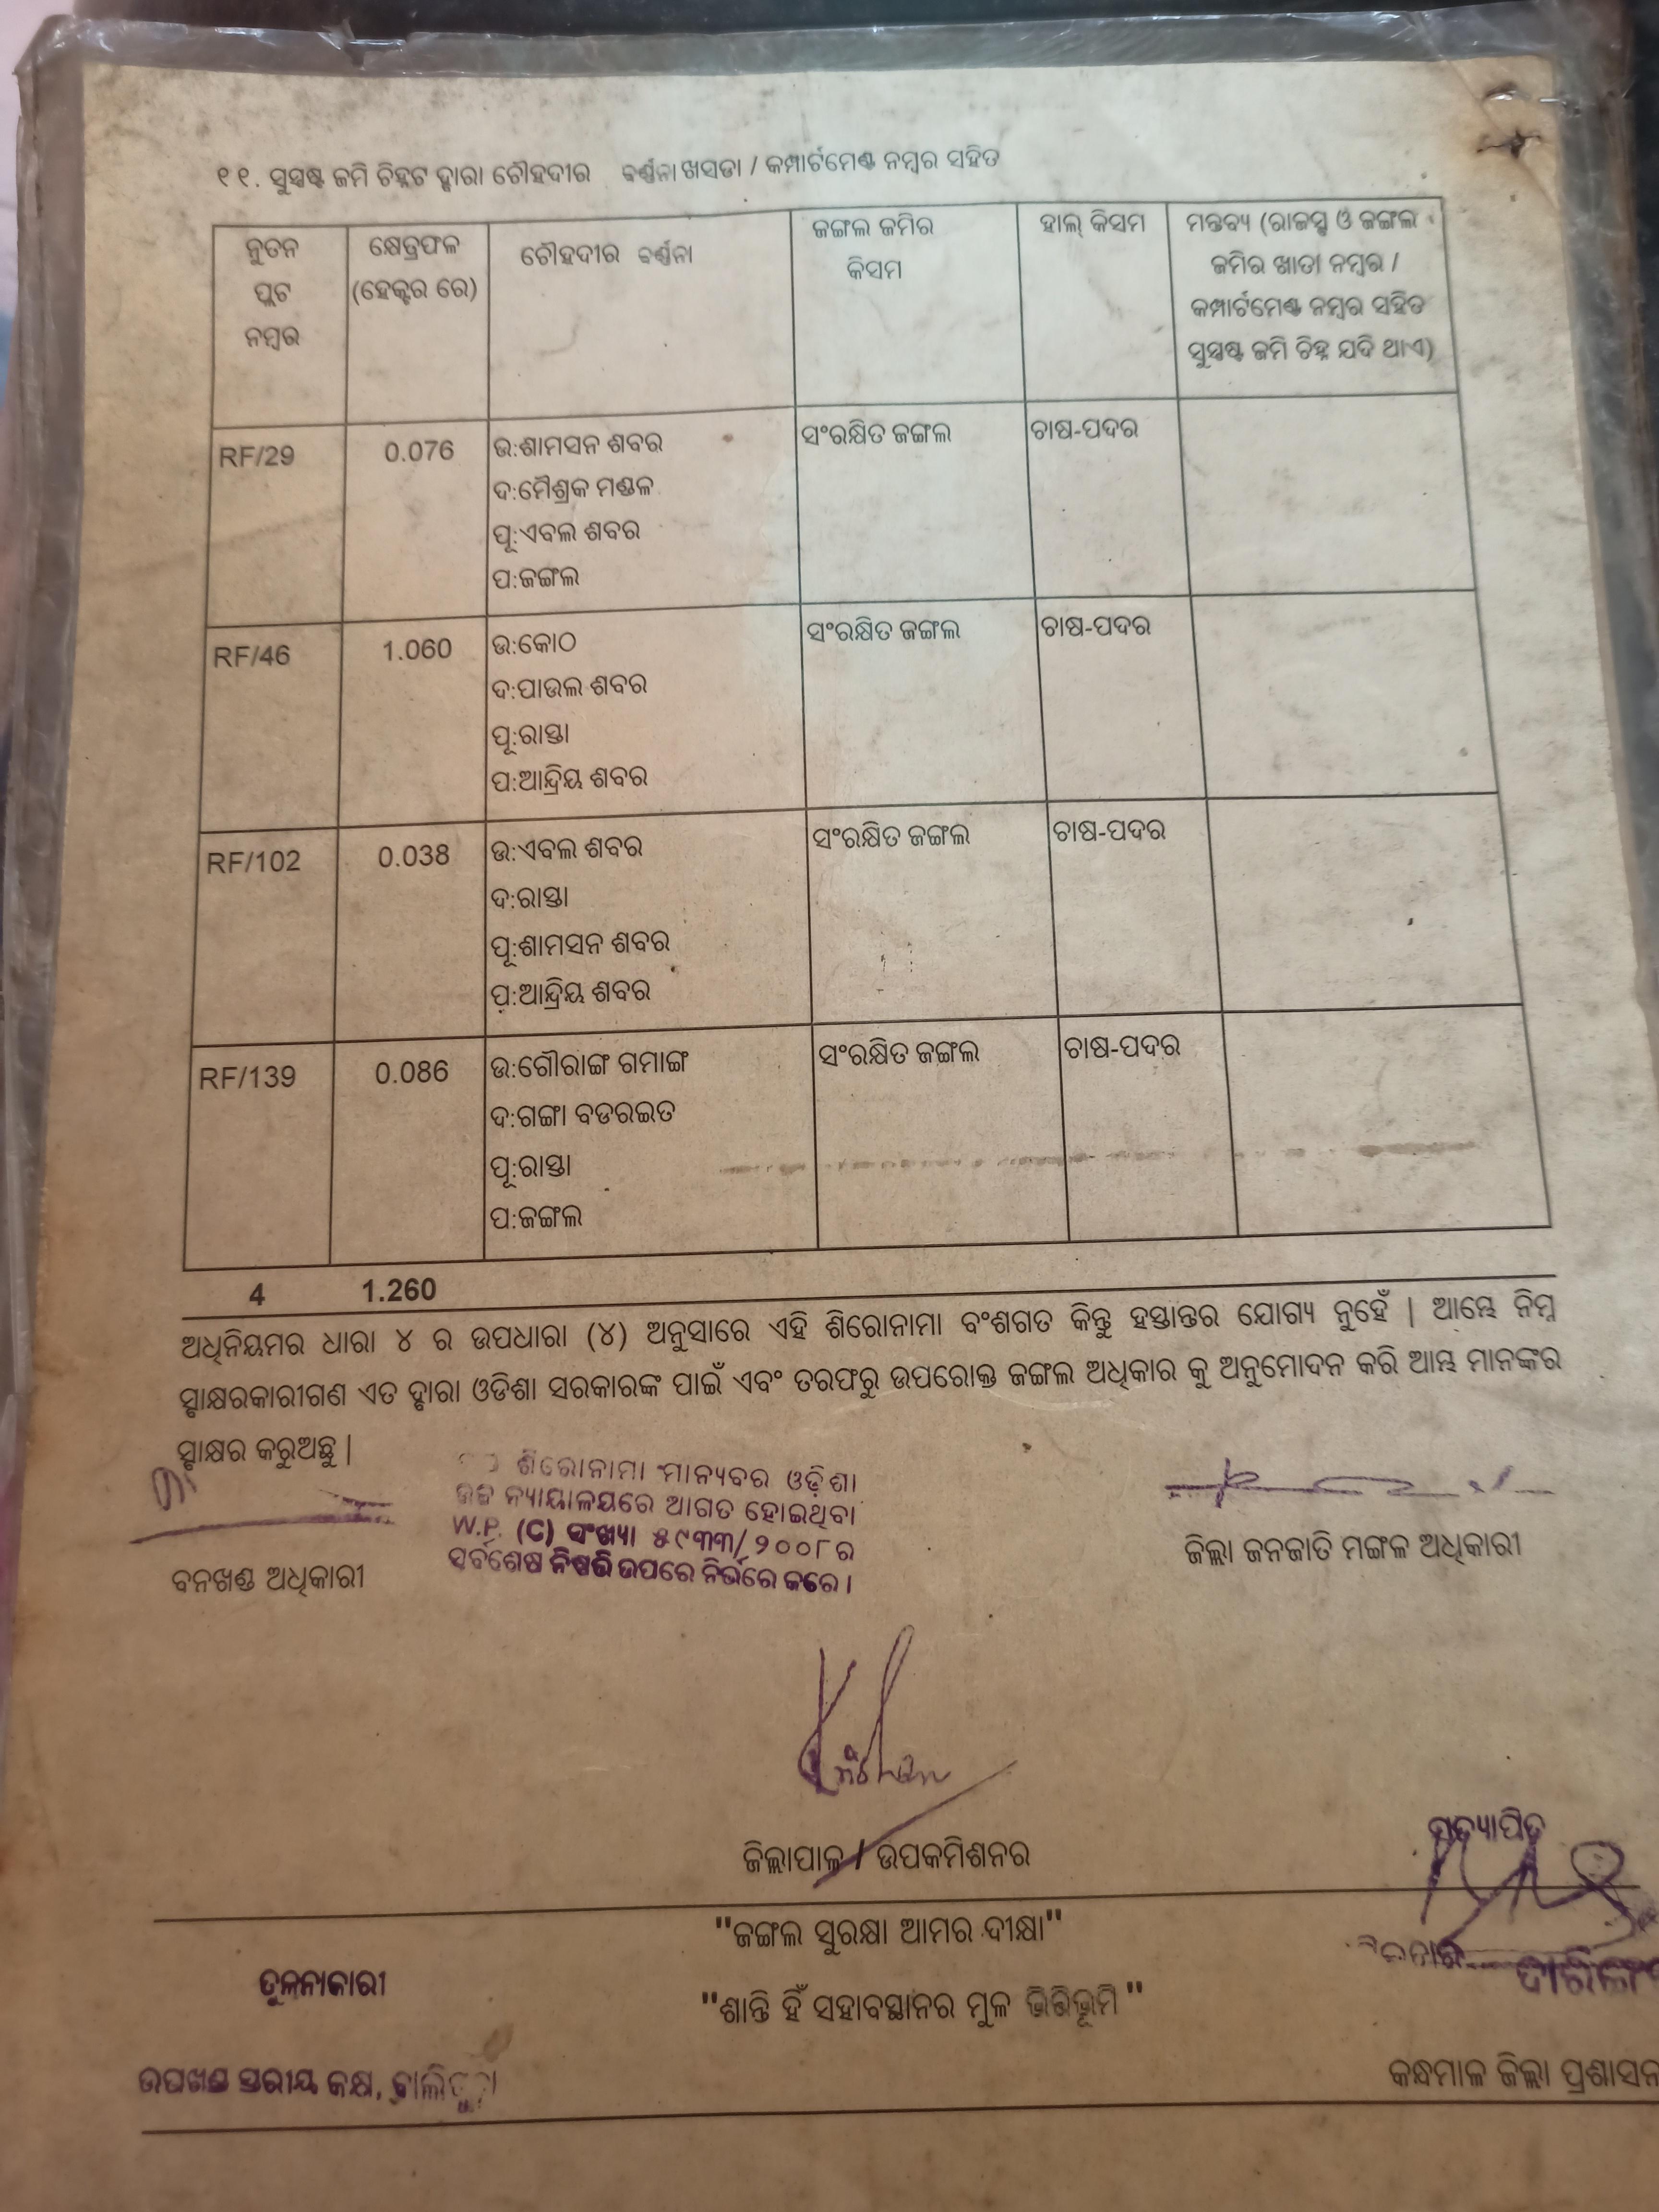 ୧୧. ସୁସ୍ପଷ୍ଟ ଜମି ଚିହ୍ନଟ ଦ୍ବାରା ଚୌହଦୀର ବର୍ଣ୍ଣନା ଖସଡା / କମ୍ପାର୍ଟମେଣ୍ଟ ନମ୍ବର ସହିତ
ନୁତନ ପ୍ଲଟ ନମ୍ବର
କ୍ଷେତ୍ରଫଳ (ହେକ୍ଟର ରେ)
ଚୌହଦୀର ବର୍ଣ୍ଣନା
ଜଙ୍ଗଲ ଜମିର କିସମ
ହାଲ୍ କିସମ
ମନ୍ତବ୍ୟ (ରାଜସ୍ବ ଓ ଜଙ୍ଗଲ
ଜମିର ଖାତା ନମ୍ବର /
କମ୍ପାର୍ଟମେଣ୍ଟ ନମ୍ବର ସହିତ
ସୁସ୍ପଷ୍ଟ ଜମି ଚିହ୍ନ ଯଦି ଥାଏ)
RF/29 0.076 ଉ:ଶାମସନ ଶବର ସଂରକ୍ଷିତ ଜଙ୍ଗଲ ଚାଷ-ପଦର
ଦ:ମୈଶ୍ରକ ମଣ୍ଡଳ
ପୂ:ଏବଲ ଶବର
ପ:ଜଙ୍ଗଲ
RF/46 1.060 ଉ:କୋଠ ସଂରକ୍ଷିତ ଜଙ୍ଗଲ ଚାଷ-ପଦର
ଦ:ପାଉଲ ଶବର
ପୂ:ରାସ୍ତା
ପ:ଆନ୍ଦ୍ରିୟ ଶବର
RF/102 0.038 ଉ:ଏବଲ ଶବର ସଂରକ୍ଷିତ ଜଙ୍ଗଲ ଚାଷ-ପଦର
ଦ:ରାସ୍ତା
ପୂ:ଶାମସନ ଶବର
ପ:ଆନ୍ଦ୍ରିୟ ଶବର
RF/139 0.086 ଉ:ଗୌରାଙ୍ଗ ଗମାଙ୍ଗ ସଂରକ୍ଷିତ ଜଙ୍ଗଲ ଚାଷ-ପଦର
ଦ:ଗଙ୍ଗା ବଡରଇତ
ପୂ:ରାସ୍ତା
ପ:ଜଙ୍ଗଲ
4 1.260
ଅଧିନିୟମର ଧାରା ୪ ର ଉପଧାରା (୪) ଅନୁସାରେ ଏହି ଶିରୋନାମା ବଂଶଗତ କିନ୍ତୁ ହସ୍ତାନ୍ତର ଯୋଗ୍ୟ ନୁହେଁ | ଆମ୍ଭେ ନିମ୍ନ
ସ୍ବାକ୍ଷରକାରୀଗଣ ଏତ ଦ୍ବାରା ଓଡିଶା ସରକାରଙ୍କ ପାଇଁ ଏବଂ ତରଫରୁ ଉପରୋକ୍ତ ଜଙ୍ଗଲ ଅଧିକାର କୁ ଅନୁମୋଦନ କରି ଆମ୍ଭ ମାନଙ୍କର
ସ୍ବାକ୍ଷର କରୁଅଛୁ |
ଶିରୋନାମା ମାନ୍ୟବର ଓଡ଼ିଶା
ଉଚ୍ଚ ନ୍ୟାୟାଳୟରେ ଆଗତ ହୋଇଥିବା
W.P. (C) ସଂଖ୍ୟା ୫୯୩୩/୨୦୦୮ ର
ସର୍ବଶେଷ ନିଷ୍ପତ୍ତି ଉପରେ ନିର୍ଭରେ କରେ ।
ବନଖଣ୍ଡ ଅଧିକାରୀ
ଜିଲ୍ଲା ଜନଜାତି ମଙ୍ଗଳ ଅଧିକାରୀ
ଜିଲ୍ଲାପାଳ / ଉପକମିଶନର
ସତ୍ୟାପିତ
"ଜଙ୍ଗଲ ସୁରକ୍ଷା ଆମର ଦୀକ୍ଷା"
ତୁଳନାକାରୀ
"ଶାନ୍ତି ହିଁ ସହାବସ୍ଥାନର ମୁଳ ଭିତ୍ତିଭୂମି "
ଉପଖଣ୍ଡ ସ୍ତରୀୟ କକ୍ଷ,
କନ୍ଧମାଳ ଜିଲ୍ଲା ପ୍ରଶାସନ